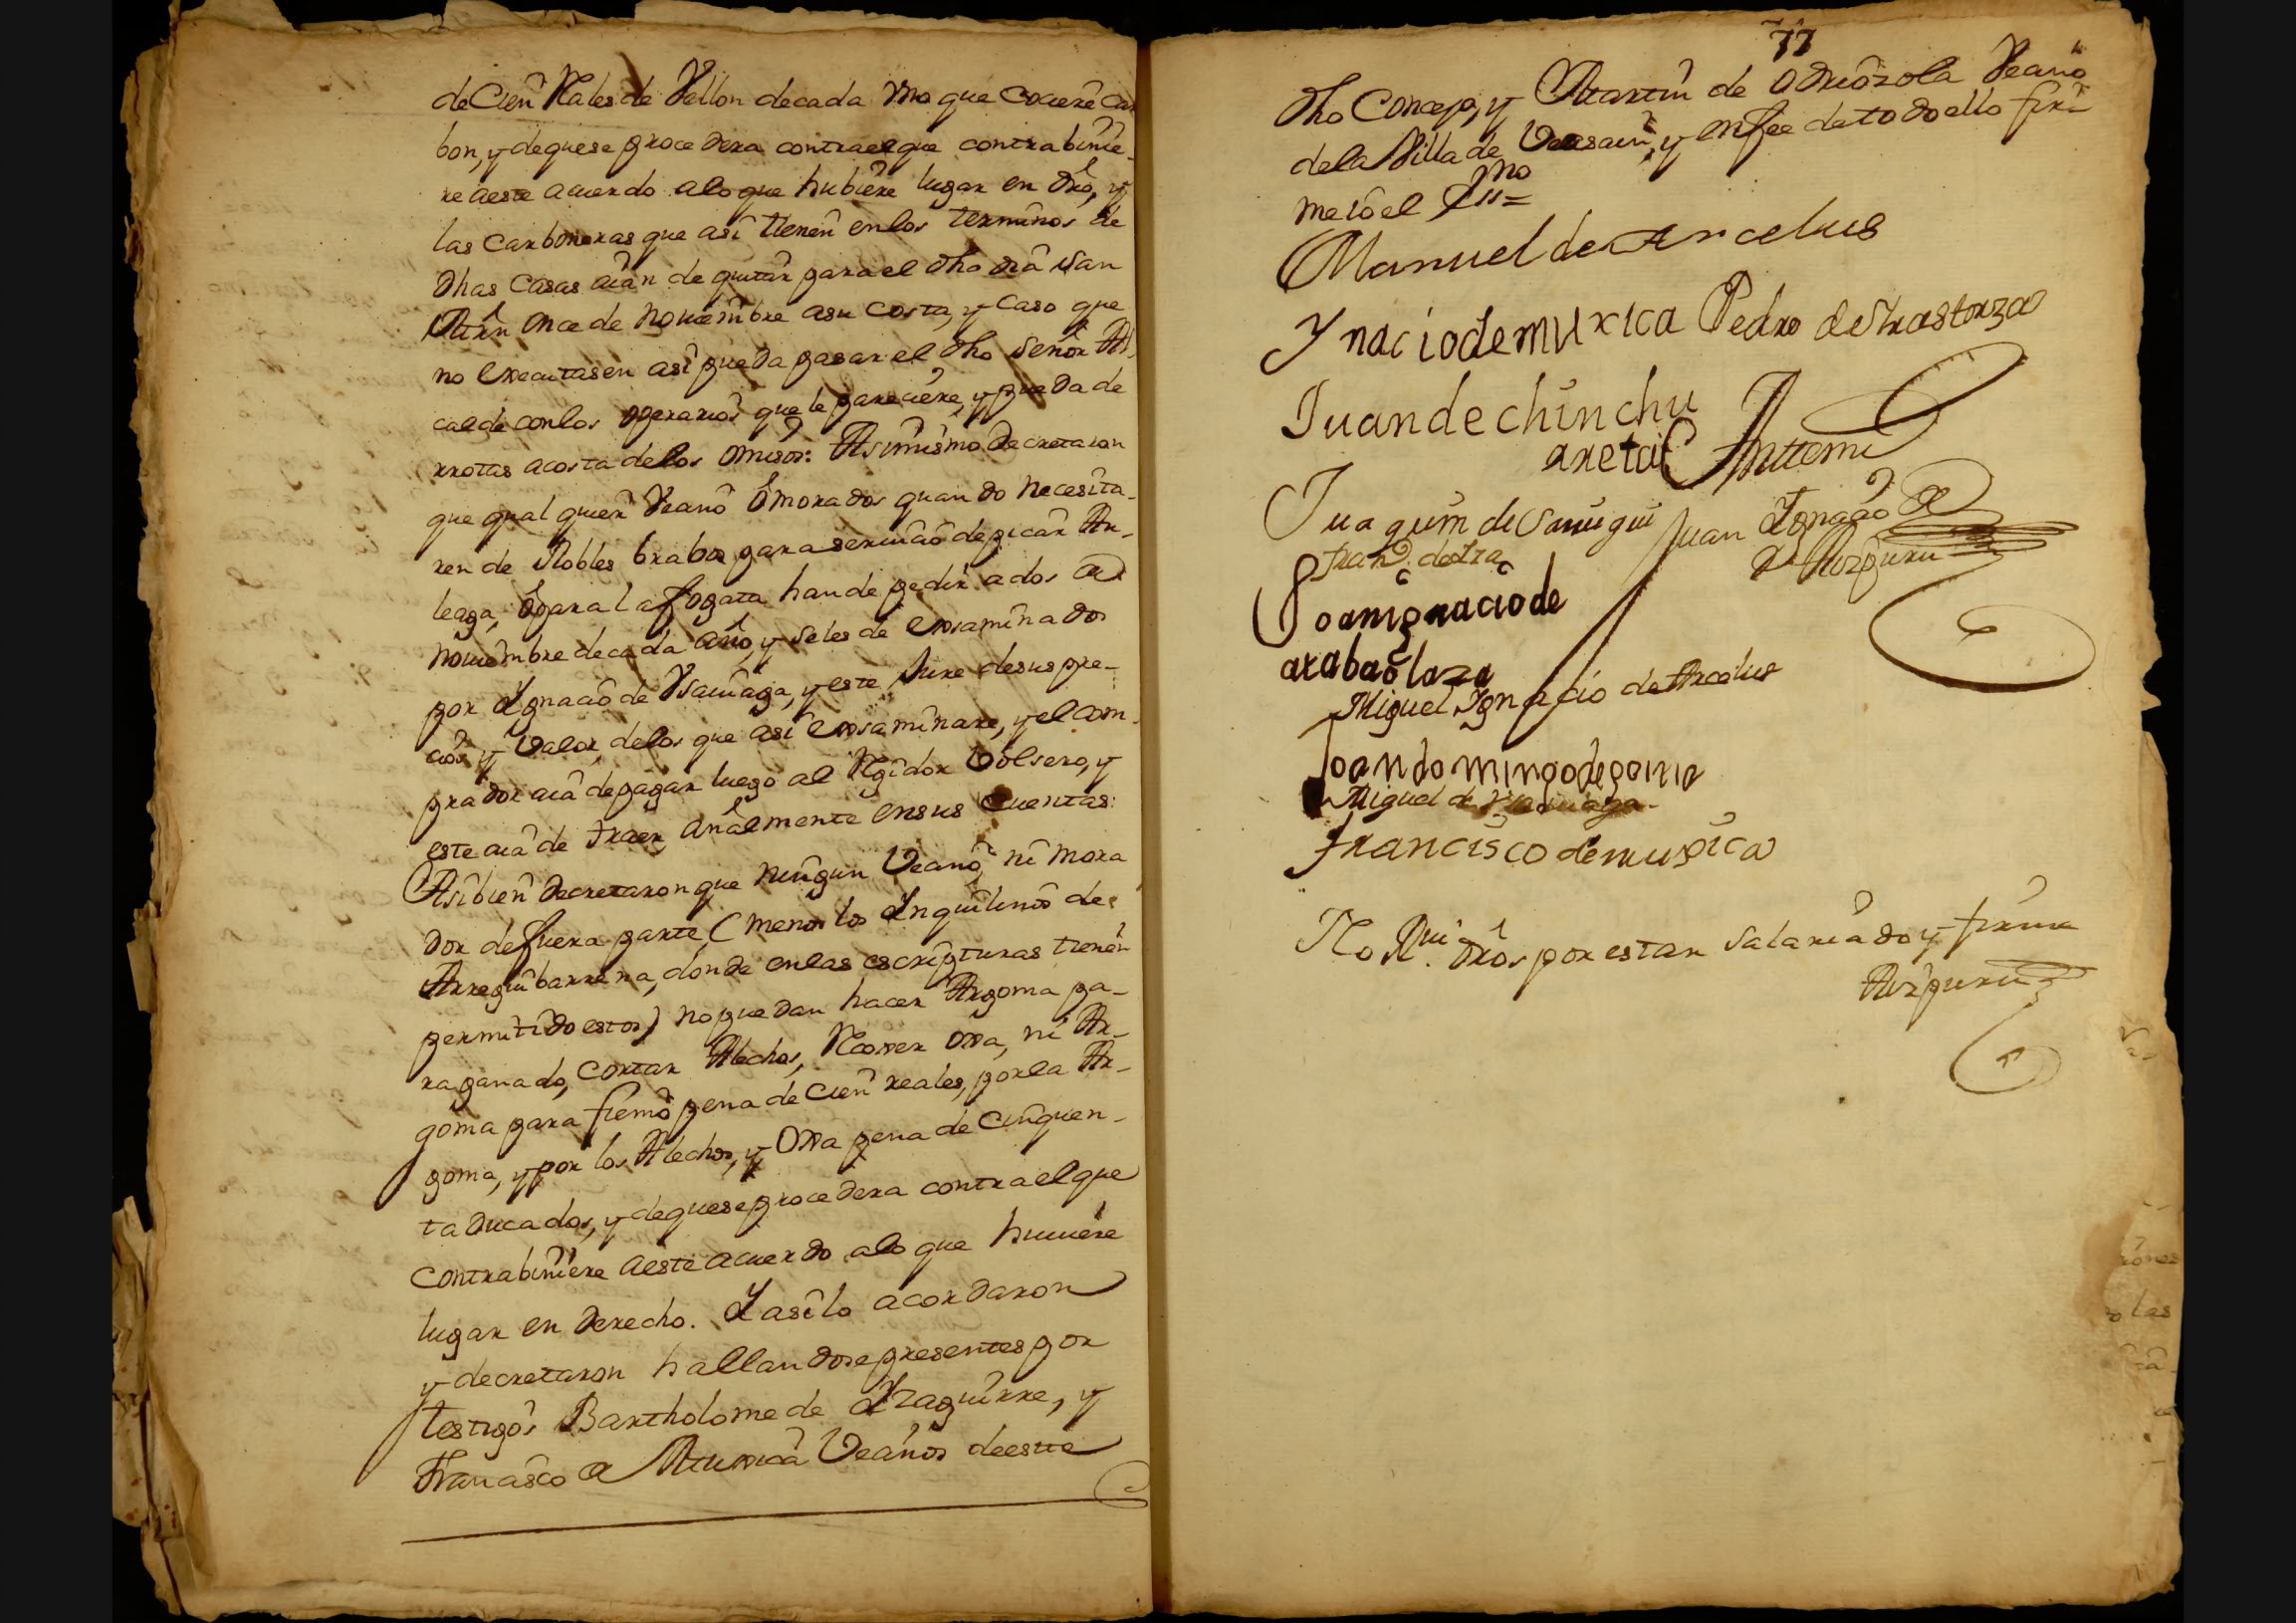 de Cien Rales de Vellon de cada Uno que Cociere Car
bon, y de que se procedera contra el que contrabinie-
re a este acuerdo a lo que hubiere lugar en dro, y
las Carboneras que asi tienen en los terminos de
dhas Casas aian de quitar para el dho dia San
Mrn Once de Nouiembre a su Costa, y Caso que
no Executasen asi pueda pasar el dho Señor Al-
calde con los operarios que le pareciere, y pueda de
rrotas a costa de los Omisos: Asimismo Decretaron
que qual quier Vecino ô morador quando Necesita-
ren de Robles brabos para seruicio de picar An-
leaga, ô para la fogata han de pedir a dos de
Nouiembre de cada Año, y se les de Exsaminados
por Ygnacio de Vsauiaga, y este Jure de sus pre-
cios y Valor de los que asi Exsaminare, y el Com-
prador aia de pagar luego al Rgidor Bolsero, y
este aia de traer Anualmente en sus Cuentas:
Asi bien Decretaron que Ningun Vecino, ni Mora
dor de fuera parte (menos los Ynquilinos de
Arreguibarrena, donde en las escripturas tienen
permitido estos) no puedan hacer Argoma pa-
ra ganado, Cortar Alechos, Recoxer Oxa, ni Ar-
goma para fiemo pena de Cien reales, por la Ar-
goma, y por los Alechos, y Oxa pena de Cinquen-
ta Ducados, y de que se procedera contra el que
Contrabiniere a este acuerdo a lo que huuiere
lugar en Derecho. Y asi lo acordaron
y decretaron hallandose presentes por
testigos Bartholome de Yzaguirre, y
Francisco de Muxica Vecinos de este
77
dho Concejo, y Martin de Odriozola Vecino
de la Villa de Veasain, y en fee de todo ello fir-
me io el Ssno =
Manuel de Arcelus
Ynacio de muxica Pedro de Yrastorza
Juan de chinchu
rreta Antt emi
Juaquin de Sanugui Juan Ygnacio de
Aizpuru
Fran.co de
Joan ignacio de
arabaolaza
Miguel Ygnacio de Arcelus
Joan domingo de goiria
Miguel de Vsauiaga
Francisco de muxica
No R.ui dros por estar Salariado y firme
Aizpuru